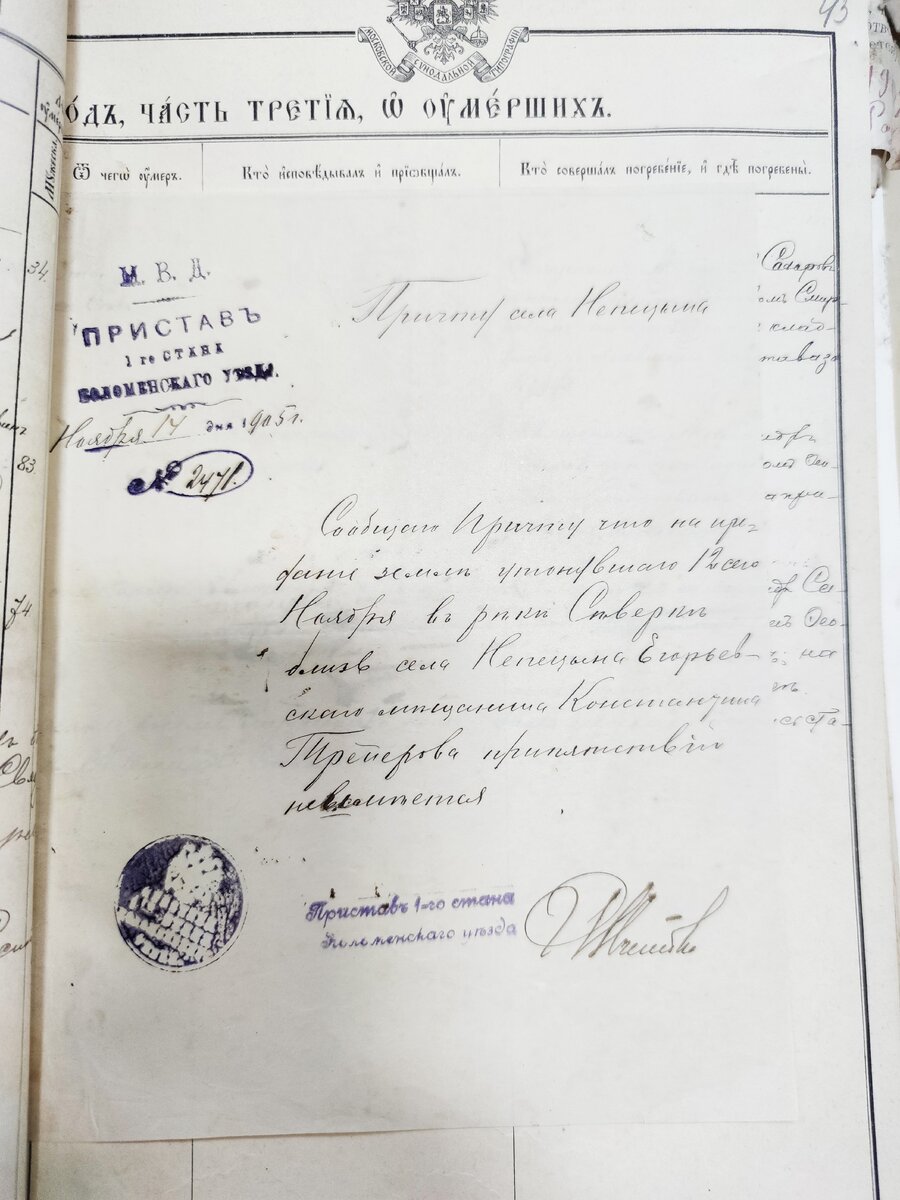 43
МОСКОВСКОЙ СѴНОДАЛЬНОЙ ТИПОГРАФІИ
ОДЪ, ЧАСТЬ ТРЕТІЯ, Ѡ ОУМЕРШИХЪ.
Ѿ чегѡ оумеръ.
Кто исповѣдывалъ и пріобщалъ.
Кто совершалъ погребеніе, и гдѣ погребены.
34
83
74
М. В. Д.
ПРИСТАВЪ
1 го СТАНА
КОЛОМЕНСКАГО УѢЗДА.
Ноября 14 дня 1905 г.
№ 2471.
Причту села Непецына
Сообщаю Причту что на пре-
даніе землѣ утонувшаго 12 сего
Ноября въ рѣки Сѣверкѣ
близъ села Непецына Егорьев-
скаго мѣщанина Константина
Трейерова припятствій
неимѣется
Приставъ 1-го стана
Коломенскаго уѣзда
Сахаровъ
омъ Смир-
клад-